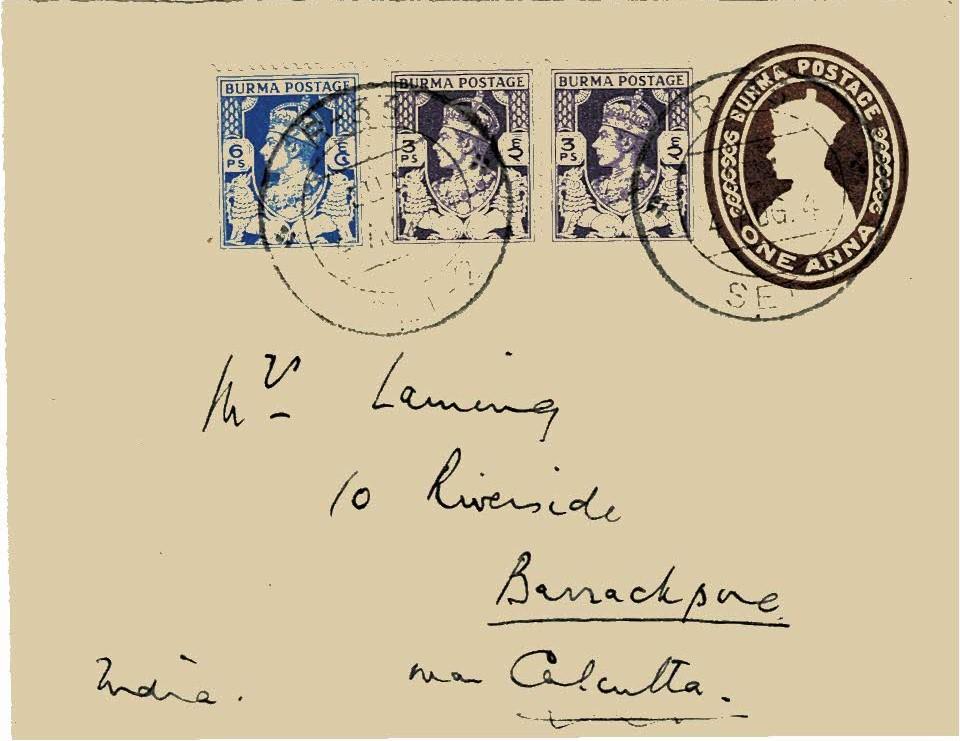 BURMA POSTAGE BURMA POSTAGE BURMA POSTAGE BURMA POSTAGE
6 PS 3 PS 3 PS
ONE ANNA
Mrs Laming
10 Riverside
Barrackpore
near Calcutta.
India.